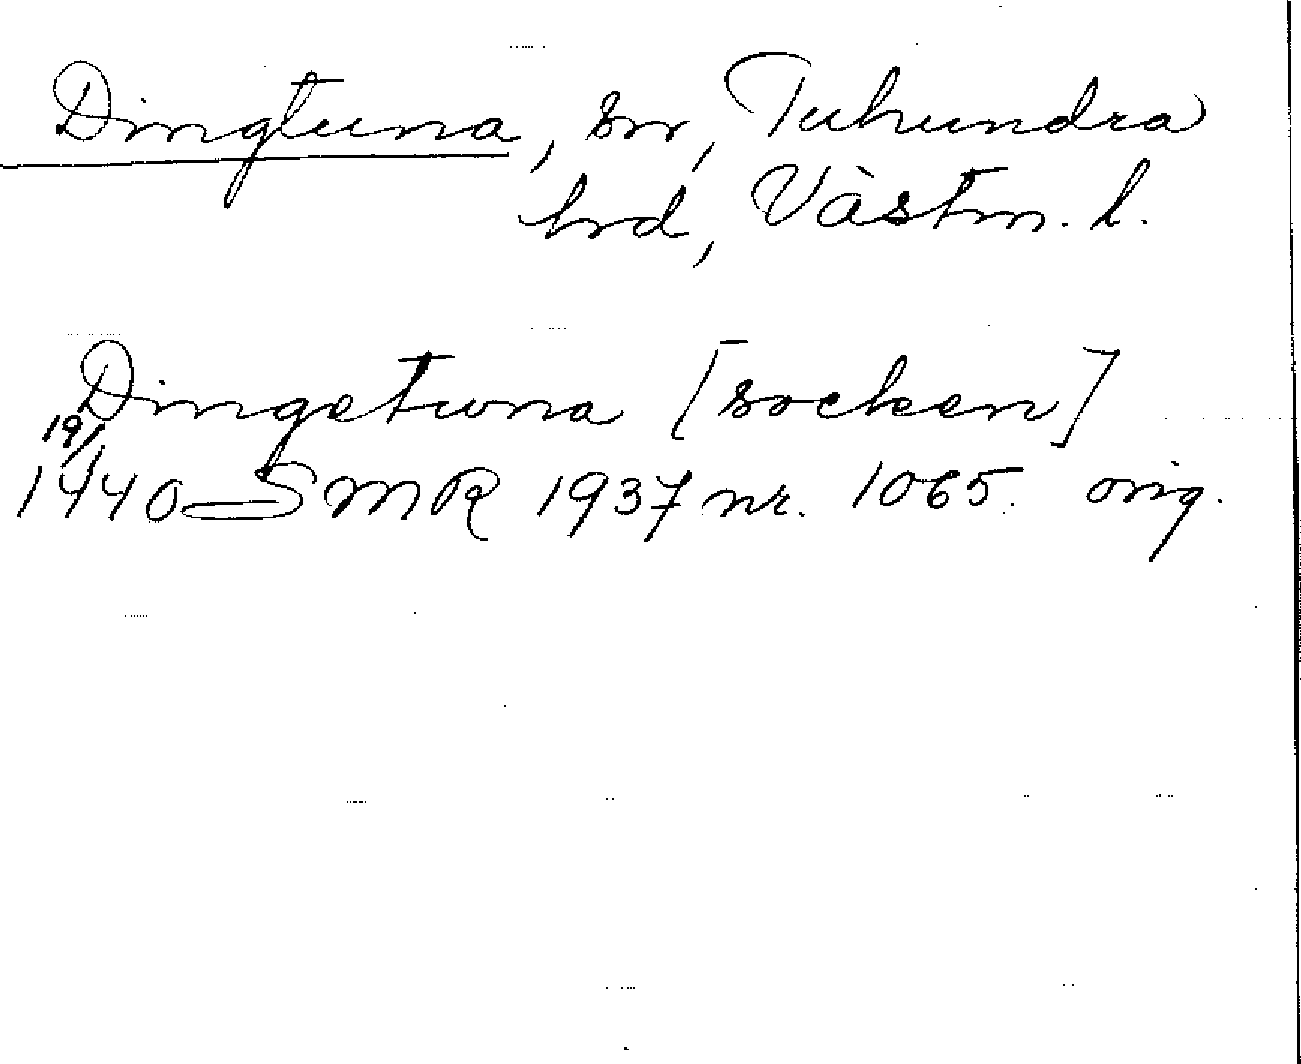 Dingtuna, sn, Tuhundra
hrd, Västm. l.
Dingetwna [socken]
19/1
1440 SMR 1937 nr. 1065. orig.